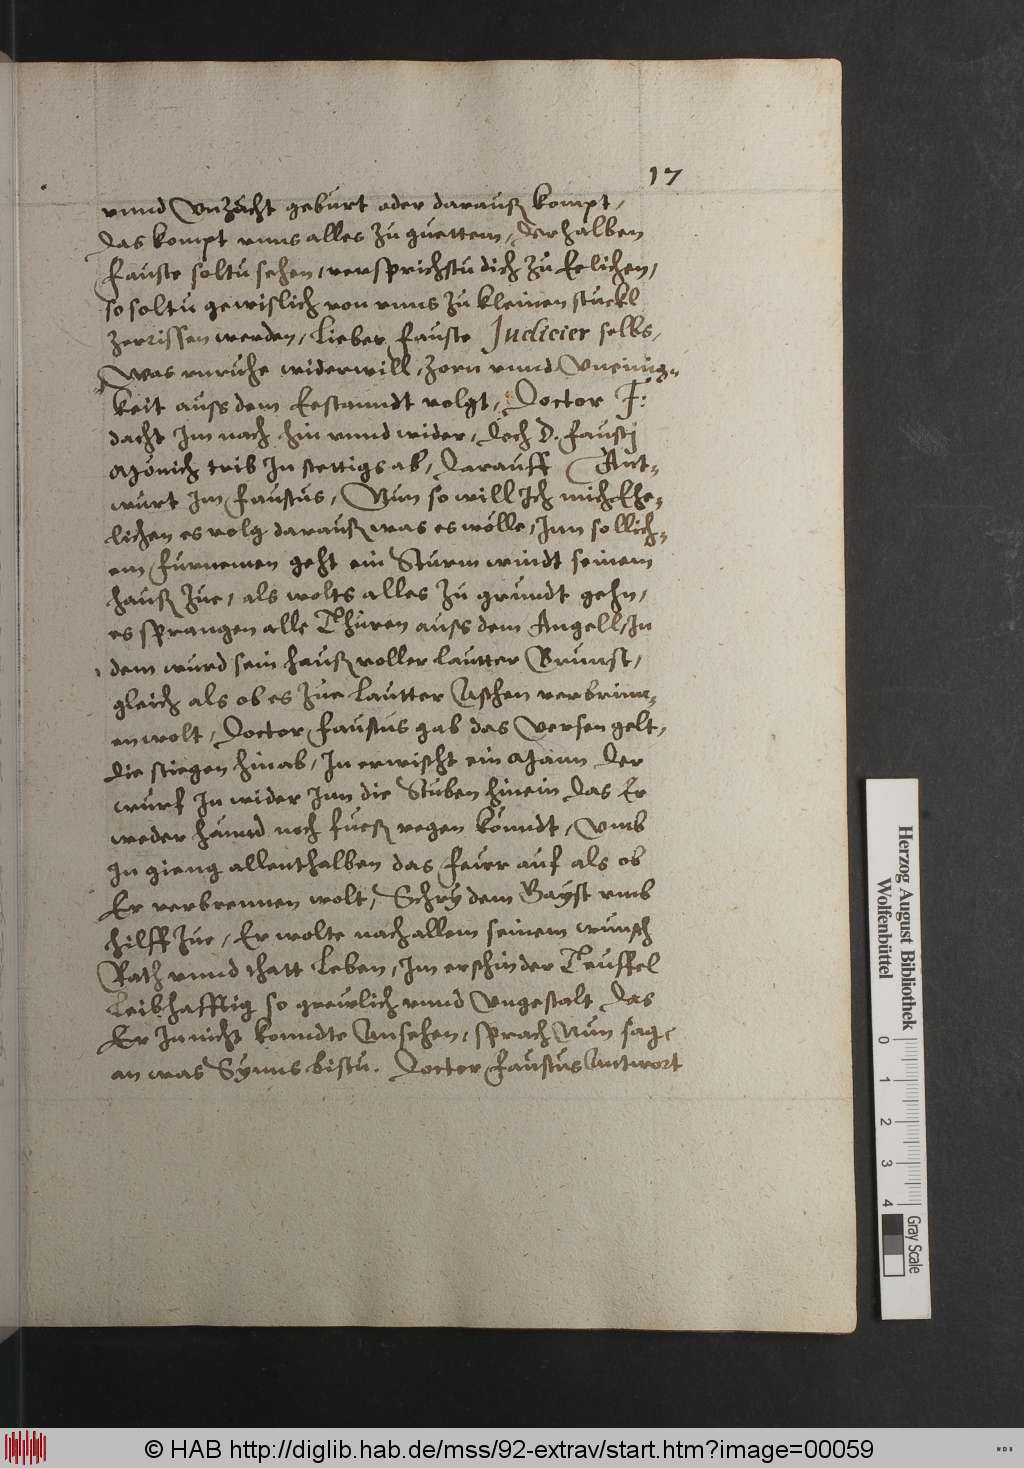 17
vnnd Vnzucht geburt oder darauß kompt,
das kompt vnns alles zu guettem, derhalben
Fauste soltu sehen, versprichstu dich zu Eelichen,
so soltu gewislich von vnns zu kleinen stuckl
zerrissen werden, Lieber Fauste Judicier selbs,
Was vnruhe widerwill, zorn vnnd Vneinig-
keit auss dem Eestanndt volgt, Doctor F:
dacht Im nach hin vnnd wider, doch D. Faustj
Mönich trib In stettigs ab, darauff Ant-
wurt Im Faustus, Nun so will Ich mich Ehe-
lichen es volg darauß was es wölle, Inn sollich-
em furnemen geht ein Sturm windt seinem
hauß zue, als wolts alles zu grundt gehn,
es sprangen alle Thüren auss dem Angell, In
dem wurd sein hauß voller lautter Brunst,
gleich als ob es zue lautter Aschen verbrinn-
en wolt, Doctor Faustus gab das Versen gelt,
die stiegen hinab, In erwischt ein Mann der
wurf In wider Inn die Stuben hinein das Er
weder hannd noch fueß regen könndt, Vmb
In gieng allenthalben das feuer auf als ob
Er verbrennen wolt, Schry dem Gayst vmb
hilff zue, Er wolte nach allem seinem wunsch
Rath vnnd thatt leben, Im erschin der Teuffel
leibhafftig so grewlich vnnd Vngestalt das
Er In nicht konndte Ansehen, sprach Nun sag,
an was Synns bistu. Doctor Faustus Antwort
Herzog August Bibliothek
Wolfenbüttel
0 1 2 3 4
Gray Scale
© HAB http://diglib.hab.de/mss/92-extrav/start.htm?image=00059
WDB